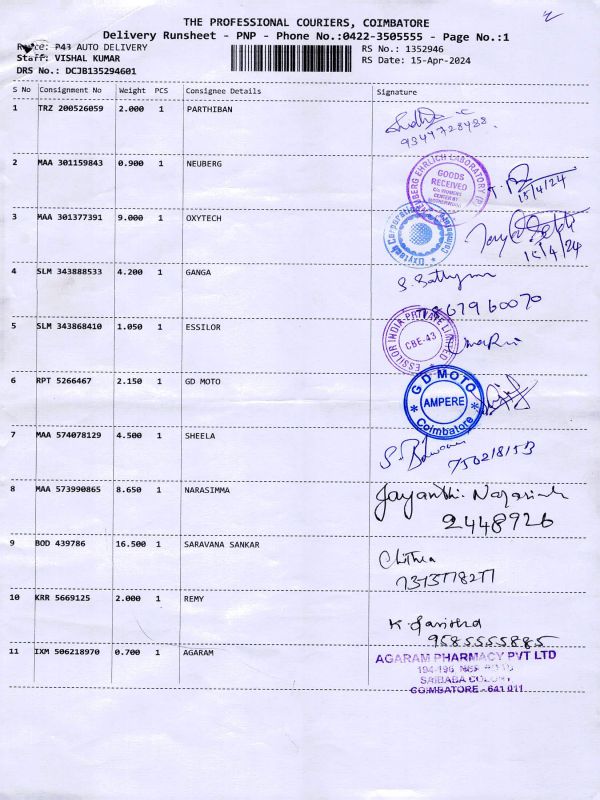 THE PROFESSIONAL COURIERS, COIMBATORE
Delivery Runsheet - PNP - Phone No.:0422-3505555 - Page No.:1
Route: P43 AUTO DELIVERY
RS No.: 1352946
Staff: VISHAL KUMAR
RS Date: 15-Apr-2024
DRS No.: DCJB135294601
S No Consignment No Weight PCS Consignee Details Signature
1 TRZ 200526059 2.000 1 PARTHIBAN
2 MAA 301159843 0.900 1 NEUBERG
NEUBERG EHRLICH LABORATORY
GOODS RECEIVED
15/4/24
3 MAA 301377391 9.000 1 OXYTECH
Oxytech Corporation
Coimbatore
15/4/24
4 SLM 343888533 4.200 1 GANGA
S. Sathya
7867960070
5 SLM 343868410 1.050 1 ESSILOR
ESSILOR INDIA PRIVATE LIMITED
CBE-43
6 RPT 5266467 2.150 1 GD MOTO
G D MOTO
AMPERE
Coimbatore
7 MAA 574078129 4.500 1 SHEELA
8 MAA 573990865 8.650 1 NARASIMMA
Jayanthi. Narasimh
2448926
9 BOD 439786 16.500 1 SARAVANA SANKAR
Chithra
10 KRR 5669125 2.000 1 REMY
9585555885
11 IXM 506218970 0.700 1 AGARAM
AGARAM PHARMACY PVT LTD
SAIBABA COLONY
COIMBATORE - 641 011